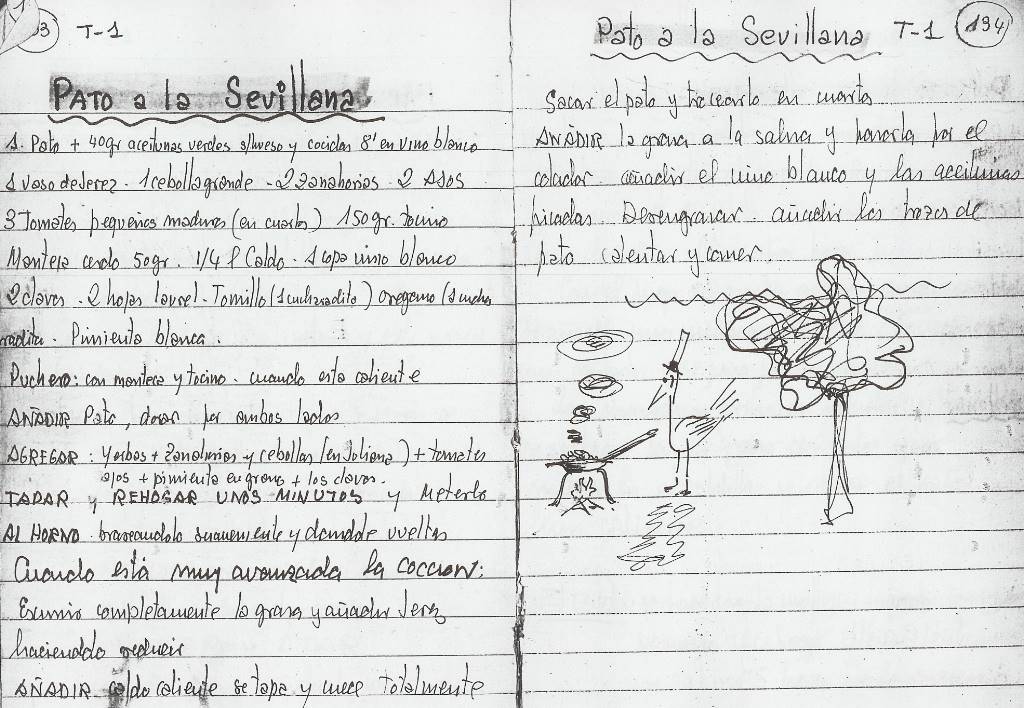 3 T-1
PATO a la Sevillana.
1. Pato + 40gr aceitunas verdes s/hueso y cocidas 8' en vino blanco
1 vaso de Jerez - 1 cebolla grande - 2 zanahorias - 2 Ajos
3 Tomates pequeños maduros (en cuarto) 150 gr. tocino
Manteca cerdo 50gr. 1/4 l Caldo - 1 copa vino blanco
2 clavos - 2 hojas laurel - Tomillo (1 cucharadita) oregano (1 cucha
radita. Pimienta blanca.
Puchero: con manteca y tocino. cuando esta caliente
AÑADIR Pato, dorar por ambos lados
AGREGAR: Yerbas + zanahorias y cebollas (en Juliana) + tomates
ajos + pimienta en grano + los clavos.
TAPAR y REHOGAR UNOS MINUTOS y Meterlo
AL HORNO. braseandolo suavemente y dandole vueltas
Cuando está muy avanzada la COCCION:
Exumir completamente la grasa y añadir Jerez
haciendolo reducir
AÑADIR caldo caliente se tapa y cuece totalmente
Pato a la Sevillana T-1 194
Sacar el pato y trocearlo en cuartos
AÑADIR la grasa a la salsa y pasarla por el
colador. añadir el vino blanco y las aceitunas
picadas. Desengrasar. añadir los trozos de
pato calentar y comer.